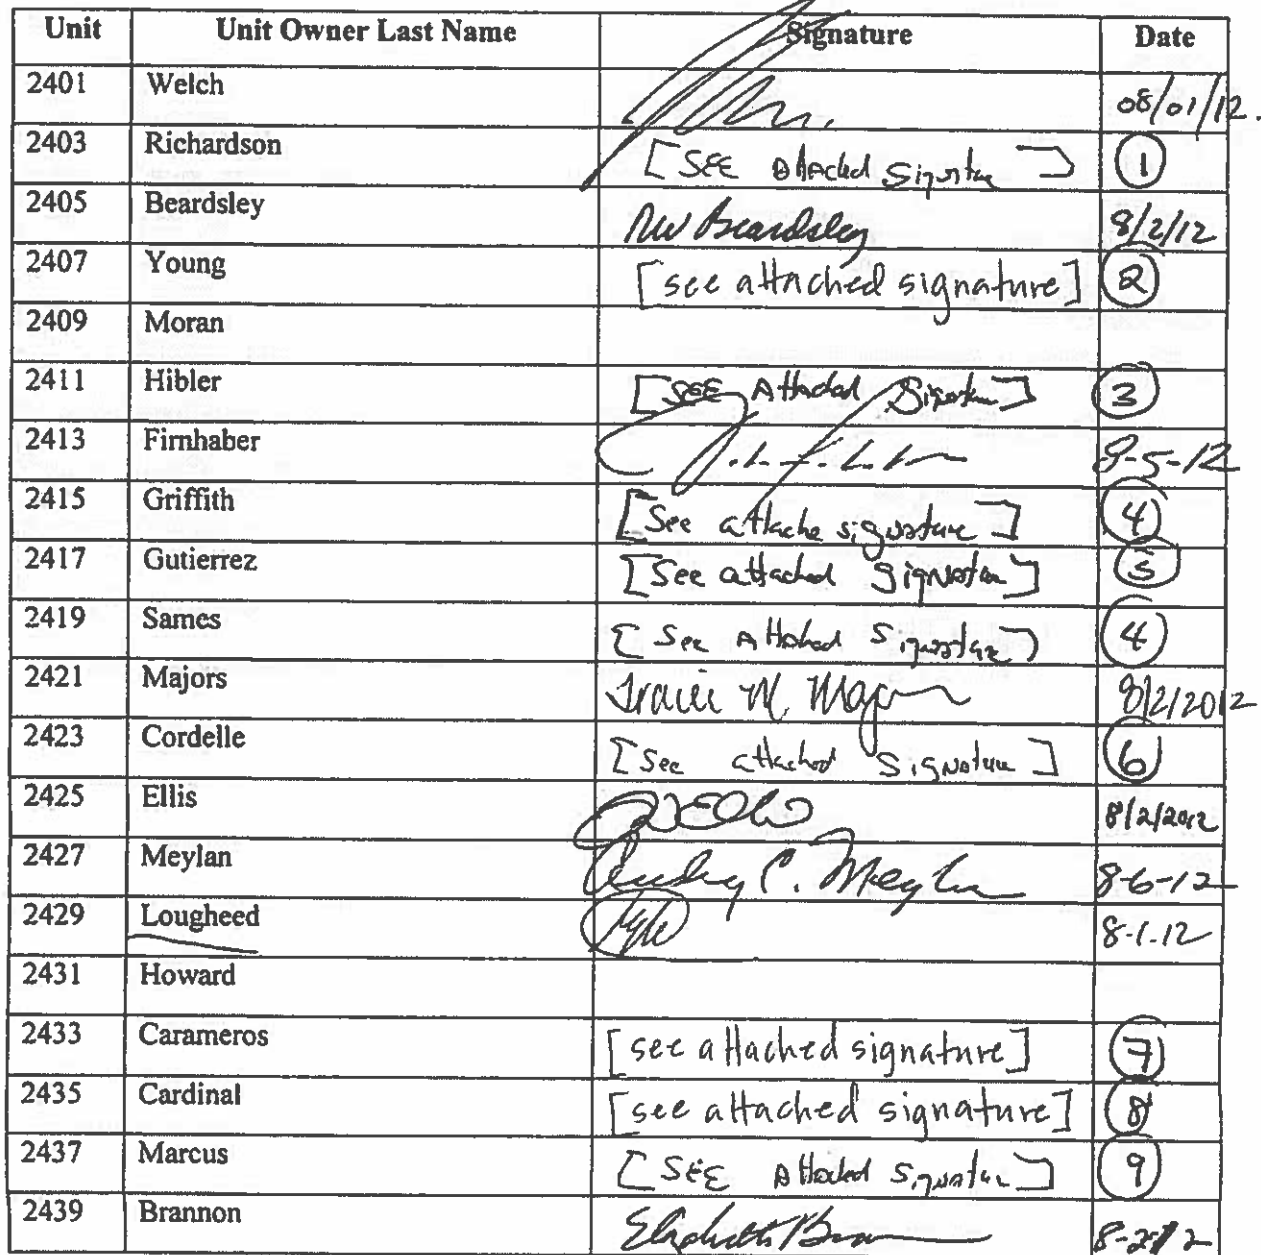 Unit Unit Owner Last Name Signature Date
2401 Welch 08/01/12.
2403 Richardson [SEE Attached Signature] 1
2405 Beardsley RW Beardsley 8/2/12
2407 Young [see attached signature] 2
2409 Moran
2411 Hibler [SEE Attached Signature] 3
2413 Firnhaber 8-5-12
2415 Griffith [See attache signature] 4
2417 Gutierrez [See attached Signature] 5
2419 Sames [See Attached Signature] 4
2421 Majors Tracie M. Majors 8/2/2012
2423 Cordelle [See attached Signature] 6
2425 Ellis 8/2/2012
2427 Meylan Audrey C. Meylan 8-6-12
2429 Lougheed 8-1-12
2431 Howard
2433 Carameros [see attached signature] 7
2435 Cardinal [see attached signature] 8
2437 Marcus [SEE Attached Signature] 9
2439 Brannon Elizabeth Brannon